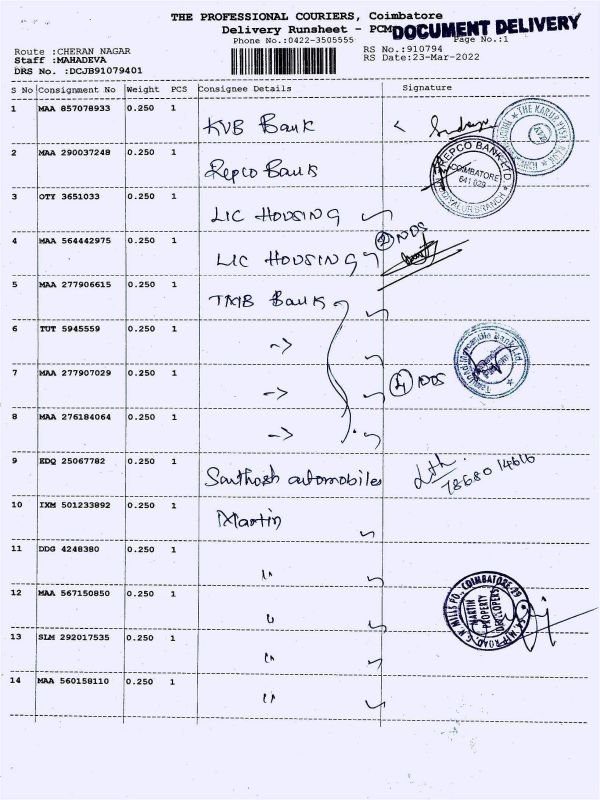 THE PROFESSIONAL COURIERS, Coimbatore
Delivery Runsheet - PCM
DOCUMENT DELIVERY
Phone No.:0422-3505555
Page No.:1
Route :CHERAN NAGAR
RS No.:910794
Staff :MAHADEVA
RS Date:23-Mar-2022
DRS No. :DCJB91079401
S No Consignment No Weight PCS Consignee Details Signature
1 MAA 857078933 0.250 1 KVB Bank
2 MAA 290037248 0.250 1 Repco Bank
REPCO BANK LTD.
COIMBATORE
641 029
3 OTY 3651033 0.250 1 LIC HOUSING
4 MAA 564442975 0.250 1 LIC HOUSING
② NDS
5 MAA 277906615 0.250 1 TMB Bank
6 TUT 5945559 0.250 1 →
7 MAA 277907029 0.250 1 →
④ NDS
8 MAA 276184064 0.250 1 →
9 EDQ 25067782 0.250 1 Santhosh automobiles
78680 14616
10 IXM 501233892 0.250 1 Martin
11 DDG 4248380 0.250 1 "
12 MAA 567150850 0.250 1 "
MARTIN
PROPERTY
DEVELOPERS
13 SLM 292017535 0.250 1 "
14 MAA 560158110 0.250 1 "